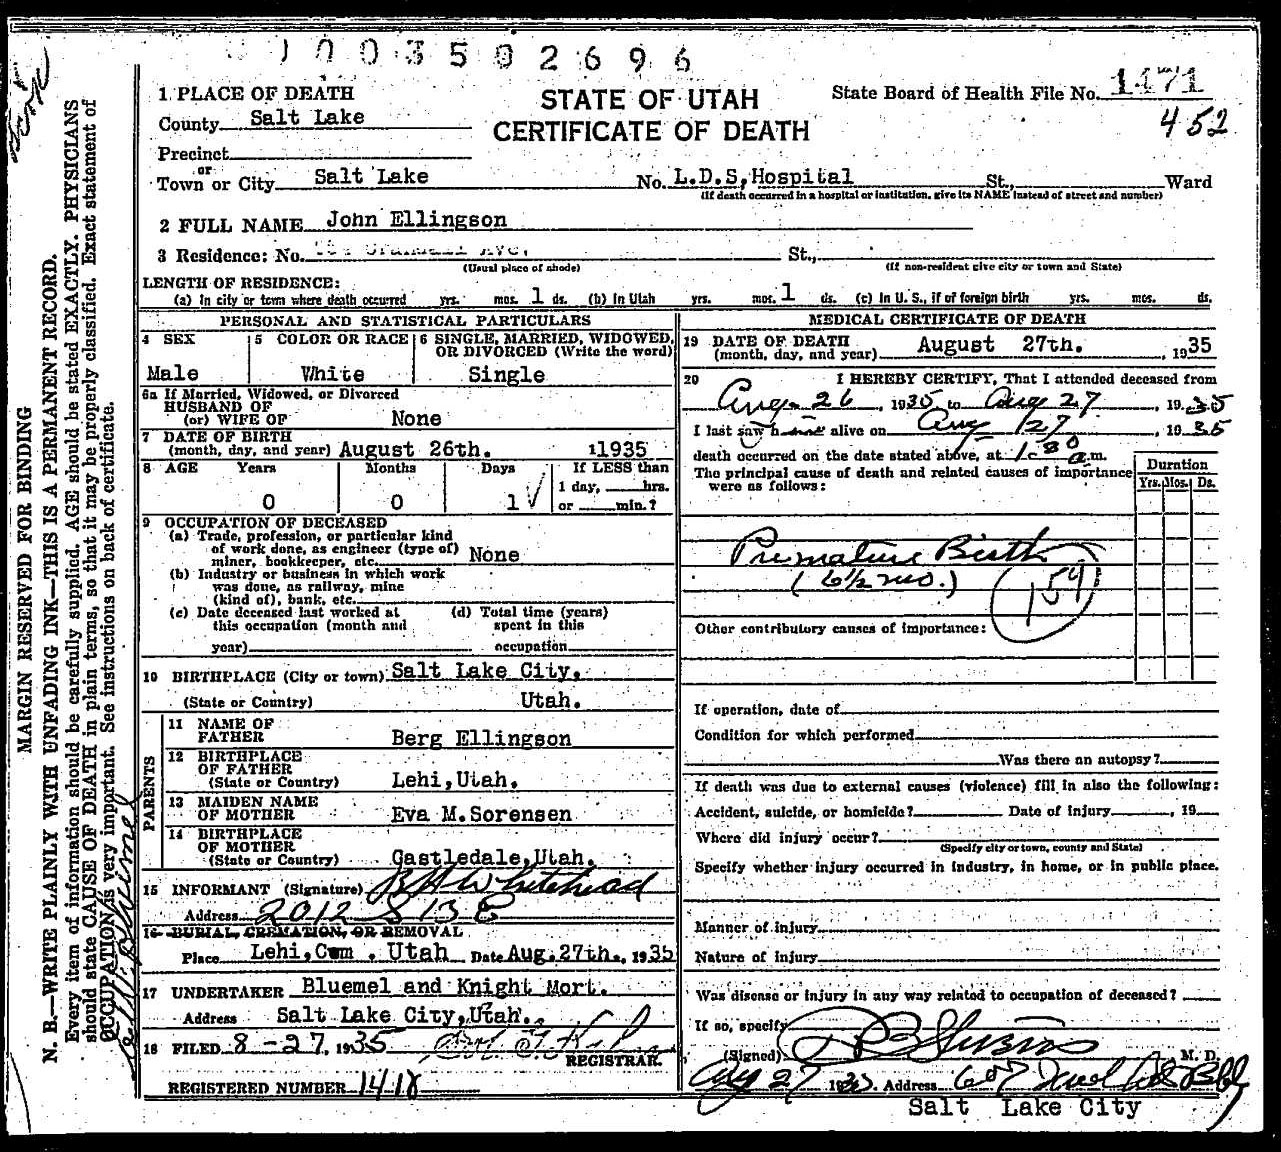 1003502696
1 PLACE OF DEATH
STATE OF UTAH
CERTIFICATE OF DEATH
State Board of Health File No. 1471
452
County Salt Lake
Precinct
or
Town or City Salt Lake No. L.D.S, Hospital St., Ward
(If death occurred in a hospital or institution, give its NAME instead of street and number)
2 FULL NAME John Ellingson
3 Residence: No. Ave. St.,
(Usual place of abode) (If non-resident give city or town and State)
LENGTH OF RESIDENCE:
(a) In city or town where death occurred yrs. mos. 1 ds. (b) In Utah yrs. mos. 1 ds. (c) In U. S., if of foreign birth yrs. mos. ds.
PERSONAL AND STATISTICAL PARTICULARS
4 SEX 5 COLOR OR RACE 6 SINGLE, MARRIED, WIDOWED,
OR DIVORCED (Write the word)
Male White Single
6a If Married, Widowed, or Divorced
HUSBAND OF
(or) WIFE OF None
7 DATE OF BIRTH
(month, day, and year) August 26th. 1935
8 AGE Years Months Days If LESS than
1 day, hrs.
or min.?
0 0 1
9 OCCUPATION OF DECEASED
(a) Trade, profession, or particular kind
of work done, as engineer (type of)
miner, bookkeeper, etc. None
(b) Industry or business in which work
was done, as railway, mine
(kind of), bank, etc.
(c) Date deceased last worked at (d) Total time (years)
this occupation (month and spent in this
year) occupation
10 BIRTHPLACE (City or town) Salt Lake City,
(State or Country) Utah.
PARENTS
11 NAME OF
FATHER Berg Ellingson
12 BIRTHPLACE
OF FATHER
(State or Country) Lehi, Utah.
13 MAIDEN NAME
OF MOTHER Eva M. Sorensen
14 BIRTHPLACE
OF MOTHER
(State or Country) Castledale, Utah.
15 INFORMANT (Signature) B H Whitehead
Address 2012 S 13 E
16 BURIAL, CREMATION, OR REMOVAL
Place Lehi, Cem. Utah Date Aug. 27th., 1935
17 UNDERTAKER Bluemel and Knight Mort.
Address Salt Lake City, Utah.
18 FILED 8-27, 1935
REGISTRAR.
REGISTERED NUMBER 1418
MEDICAL CERTIFICATE OF DEATH
19 DATE OF DEATH
(month, day, and year) August 27th. , 1935
20 I HEREBY CERTIFY, That I attended deceased from
Aug. 26, 1935 to Aug 27, 1935
I last saw h alive on Aug 27, 1935
death occurred on the date stated above, at a.m.
The principal cause of death and related causes of importance
were as follows:
Duration
Yrs. Mos. Ds.
Premature Birth
(6½ mo.) 159
Other contributory causes of importance:
If operation, date of
Condition for which performed
Was there an autopsy?
If death was due to external causes (violence) fill in also the following:
Accident, suicide, or homicide? Date of injury , 19
Where did injury occur?
(Specify city or town, county and State)
Specify whether injury occurred in industry, in home, or in public place.
Manner of injury
Nature of injury
Was disease or injury in any way related to occupation of deceased?
If so, specify
(Signed) M. D.
Aug 27 1935 Address
Salt Lake City
MARGIN RESERVED FOR BINDING
N. B.—WRITE PLAINLY WITH UNFADING INK—THIS IS A PERMANENT RECORD.
Every item of information should be carefully supplied. AGE should be stated EXACTLY. PHYSICIANS
should state CAUSE OF DEATH in plain terms, so that it may be properly classified. Exact statement of
OCCUPATION is very important. See instructions on back of certificate.